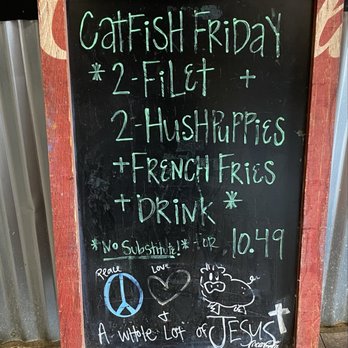 CatFish Friday
* 2-Filet +
2-Hushpuppies
+ French Fries
+ Drink *
*No Substitute!* FOR 10.49
Peace Love
&
A whole Lot of JESUS